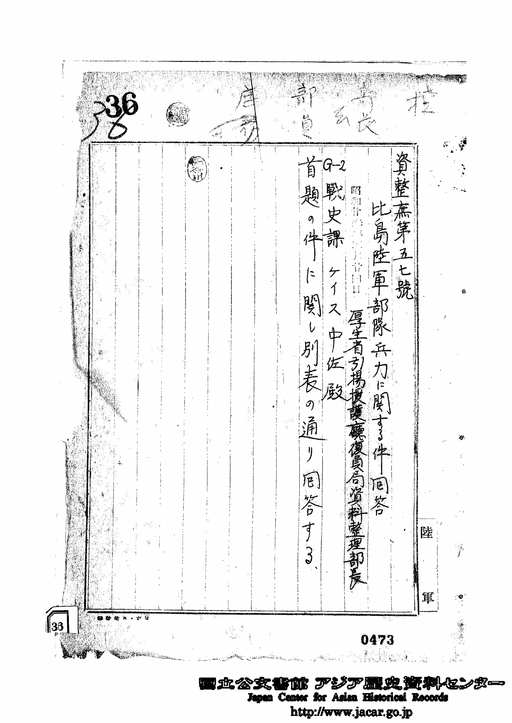 36
36
控
部長
部員
庶務
資整庶第五七號
比島陸軍部隊兵力に関する件回答
厚生省引揚援護廳復員局資料整理部長
G-2戦史課 ケイス中佐殿
首題の件に関し別表の通り回答する、
陸軍
33
0473
国立公文書館 アジア歴史資料センター
Japan Center for Asian Historical Records
http://www.jacar.go.jp